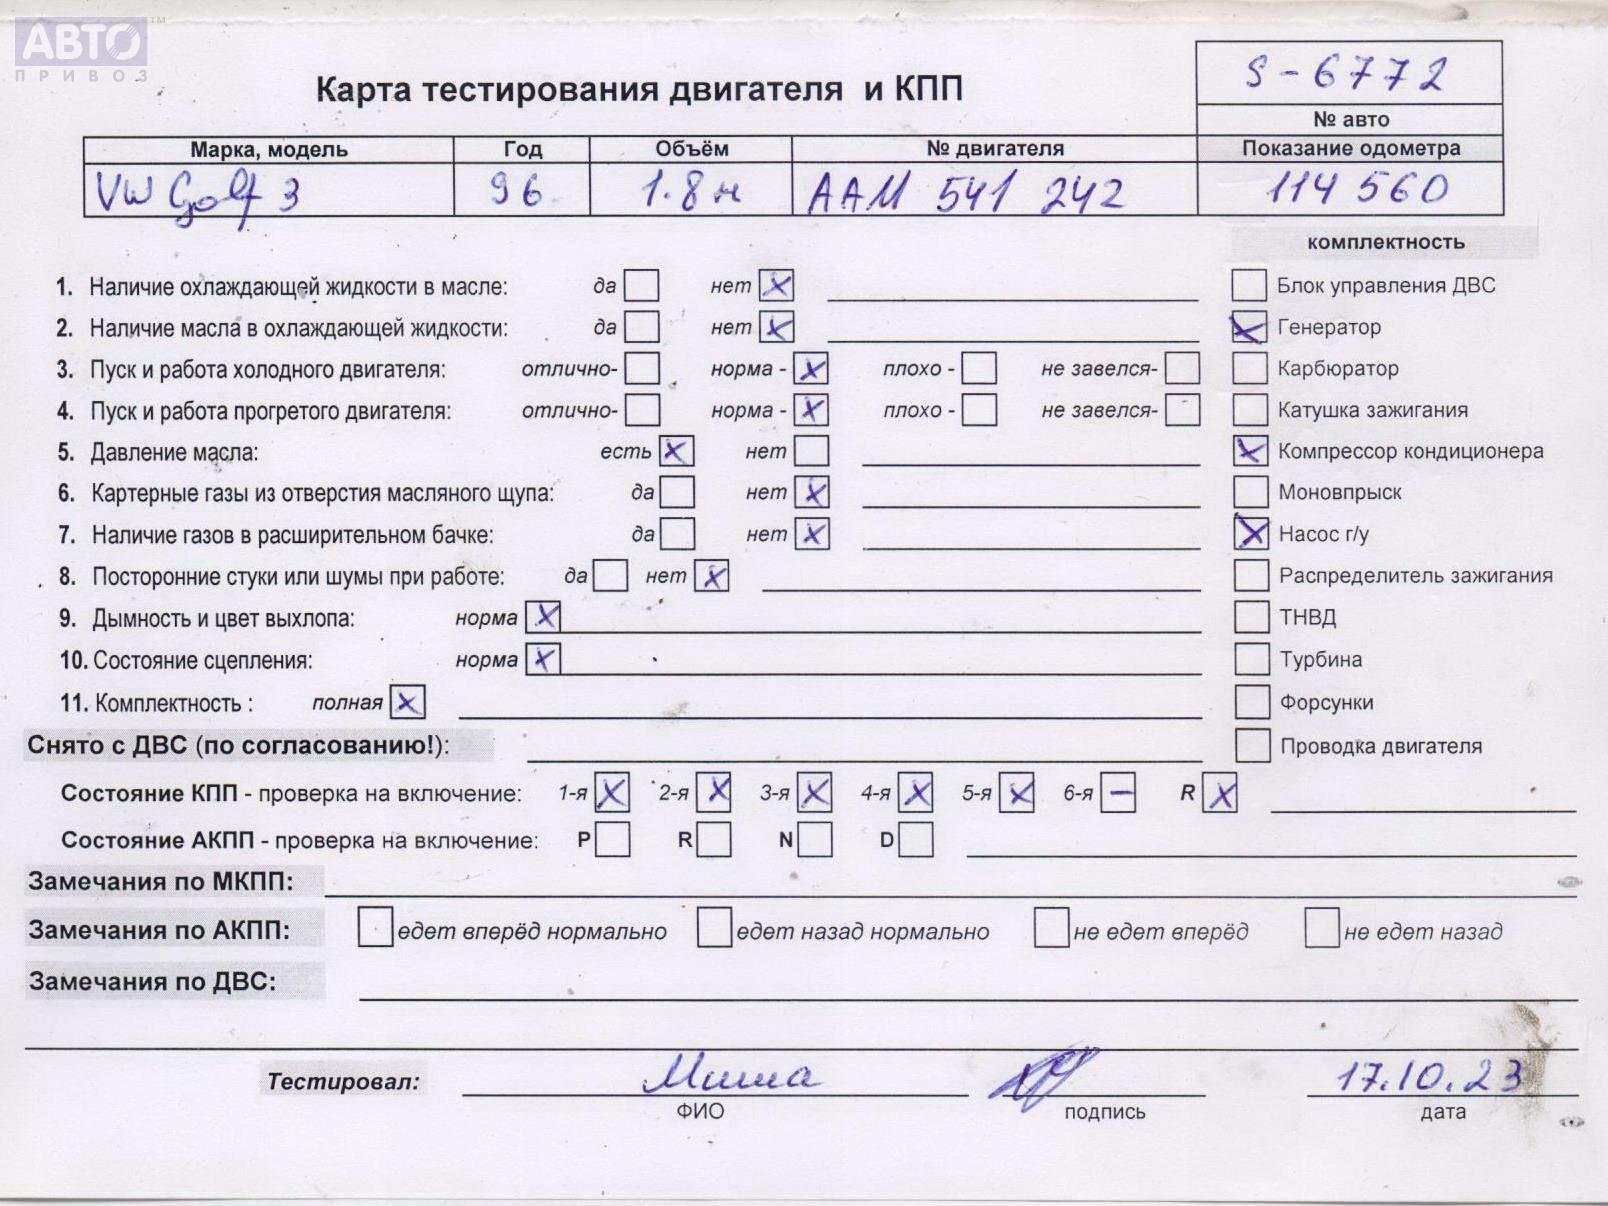 АВТО
ПРИВОЗ
Карта тестирования двигателя и КПП
S-6772
№ авто
Марка, модель Год Объём № двигателя Показание одометра
VW Golf 3 96 1.8 м AAM 541 242 114 560
комплектность
1. Наличие охлаждающей жидкости в масле: да нет X Блок управления ДВС
2. Наличие масла в охлаждающей жидкости: да нет X X Генератор
3. Пуск и работа холодного двигателя: отлично- норма - X плохо - не завелся- Карбюратор
4. Пуск и работа прогретого двигателя: отлично- норма - X плохо - не завелся- Катушка зажигания
5. Давление масла: есть X нет X Компрессор кондиционера
6. Картерные газы из отверстия масляного щупа: да нет X Моновпрыск
7. Наличие газов в расширительном бачке: да нет X X Насос г/у
8. Посторонние стуки или шумы при работе: да нет X Распределитель зажигания
9. Дымность и цвет выхлопа: норма X ТНВД
10. Состояние сцепления: норма X Турбина
11. Комплектность : полная X Форсунки
Снято с ДВС (по согласованию!): Проводка двигателя
Состояние КПП - проверка на включение: 1-я X 2-я X 3-я X 4-я X 5-я X 6-я — R X
Состояние АКПП - проверка на включение: P R N D
Замечания по МКПП:
Замечания по АКПП: едет вперёд нормально едет назад нормально не едет вперёд не едет назад
Замечания по ДВС:
Тестировал: Миша 17.10.23
ФИО подпись дата